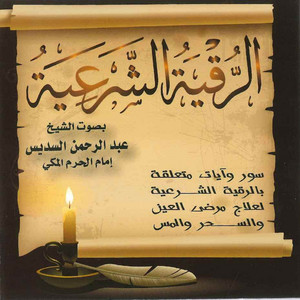 الرقية الشرعية
بصوت الشيخ
عبد الرحمن السديس
إمام الحرم المكي
سور وآيات متعلقة
بالرقية الشرعية
لعلاج مرضى العين
والسحر والمس